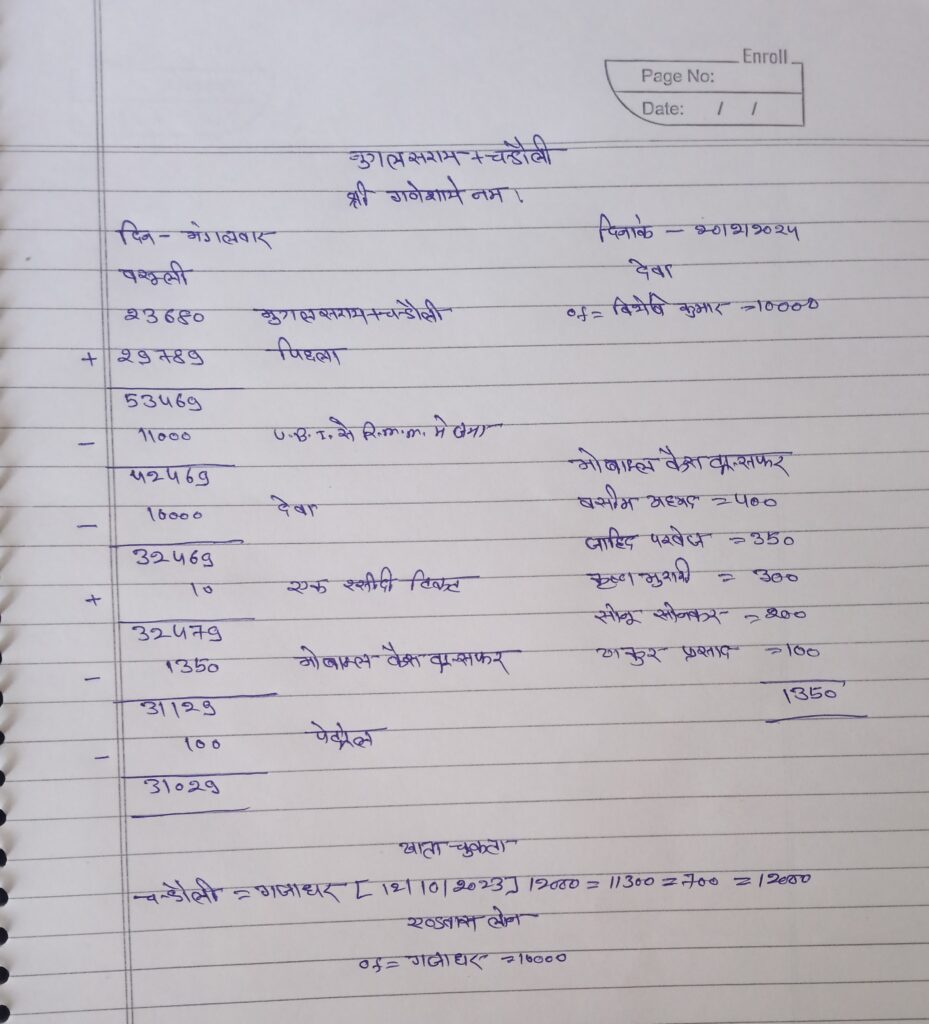 Enroll
Page No:
Date: / /
मुगलसराय + चन्डौली
श्री गनेशाये नम।
दिन - मंगलवार दिनांक - 20/2/2024
वसुली देवा
23680 मुगलसराय + चन्डौली of = कुमार = 10000
+ 29789 पिछला
53469
- 11000 U.B.I. से R.m.m. मे जमा
42469 मोबाइल कैश ट्रान्सफर
- 10000 देवा वसीम अहमद = 400
32469 जाहिद परवेज = 350
+ 10 एक रसीदी टिकट कृष्ण मुरारी = 300
32479 सोनू सोनकर = 200
- 1350 मोबाइल कैश ट्रान्सफर ठाकुर प्रसाद = 100
31129 1350
- 100 पेट्रोल
31029
खाता चुकता
चन्डौली = गजाधर [12/10/2023] 12000 = 11300 = 700 = 12000
एडवांस लोन
of = गजाधर = 10000